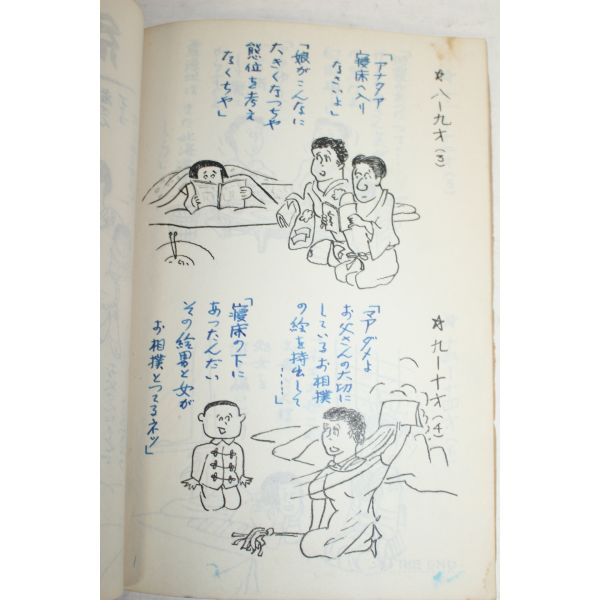 ☆八―九才(3)
「アナタア
寝床へ入り
なさいよ」
「娘がこんなに
大きくなつちや
態位を考え
なくちや」
☆九―十才(4)
「マアダメよ
お父さんの大切に
しているお相撲
の絵を持出して
……」
「寝床の下に
あつたんだい
その絵男と女が
お相撲とつてるネッ」